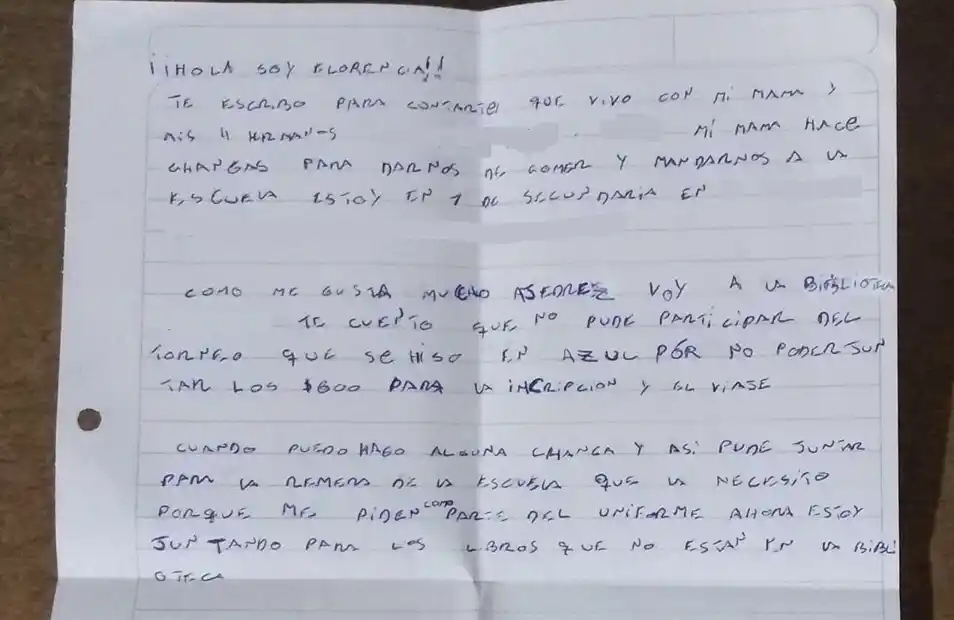 ¡¡HOLA SOY FLORENCIA!!
TE ESCRIBO PARA CONTARTE QUE VIVO CON MI MAMA Y
MIS 4 HRMANOS MI MAMA HACE
CHANGAS PARA DARNOS DE COMER Y MANDARNOS A LA
ESCUELA ESTOY EN 1 DE SECUNDARIA EN
COMO ME GUSTA MUCHO ASEDREZ VOY A LA BIBLIOTECA
TE CUENTO QUE NO PUDE PARTICIPAR DEL
TORNEO QUE SE HISO EN AZUL POR NO PODER JUN
TAR LOS $600 PARA LA INCRIPCION Y EL VIASE
CUANDO PUEDO HAGO ALGUNA CHANGA Y ASI PUDE JUNTAR
PARA LA REMERA DE LA ESCUELA QUE LA NECESITO
PORQUE ME PIDEN COMO PARTE DEL UNIFORME AHORA ESTOY
JUNTANDO PARA LOS LIBROS QUE NO ESTAN EN LA BIBLI
OTECA